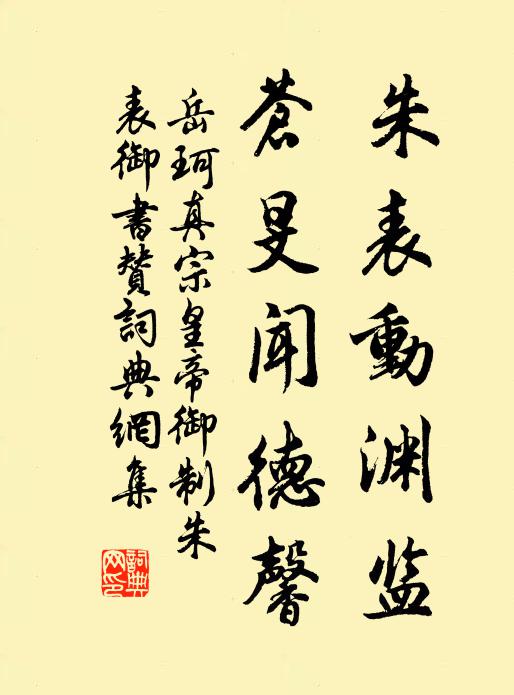 朱表動渊监
蒼旻闻德馨
岳珂真宗皇帝御制朱
表御書贊詞典網集
詞典
网印